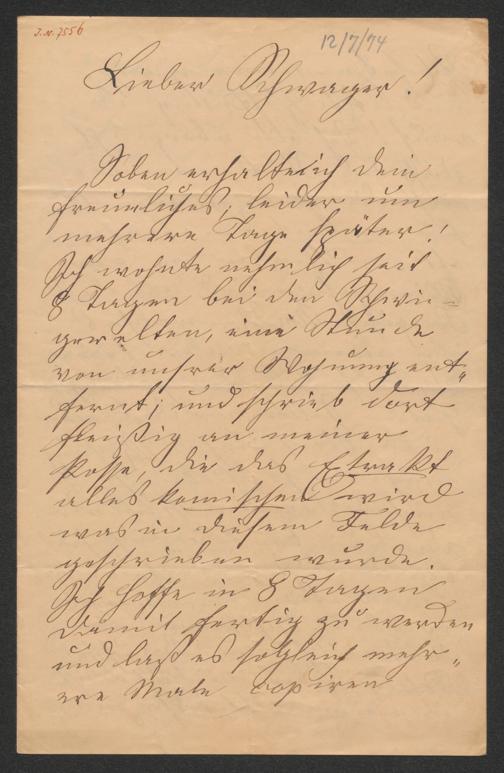 J.N. 7556
12/7/74
Lieber Schwager!
Soben erhalte ich dein
freundliches, leider um
mehrere Tage später!
Ich wohnte nehmlich seit
8 Tagen bei den Schwie-
gereltern, eine Stunde
von unsrer Wohnung ent-
fernt; und schrieb dort
fleißig an meiner
Posse, die das Extrakt
alles komischen wird
was in diesem Felde
geschrieben wurde.
Ich hoffe in 8 Tagen
damit fertig zu werden
und laß es sogleich mehr-
ere Male copiren